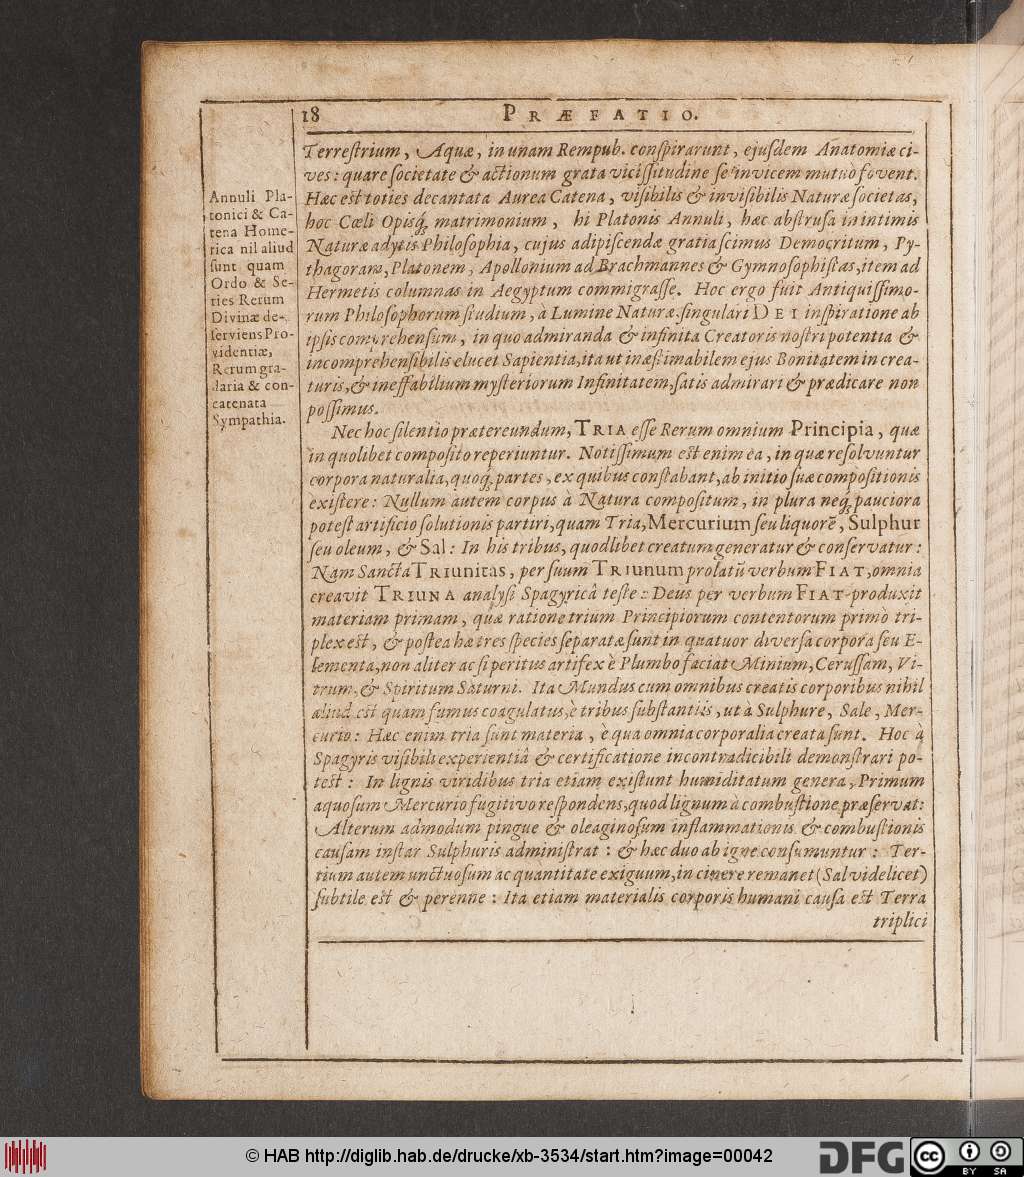 18 PRÆFATIO.
Annuli Pla-
tonici & Ca-
tena Home-
rica nil aliud
ſunt quam
Ordo & Se-
ries Rerum
Divinæ de-
ſerviens Pro-
videntiæ,
Rerum gra-
daria & con-
catenata
Sympathia.
Terreſtrium, Aquæ, in unam Rempub. conſpirarunt, ejuſdem Anatomiæ ci-
ves: quare ſocietate & actionum grata viciſſitudine ſe invicem mutuò fovent.
Hæc eſt toties decantata Aurea Catena, viſibilis & inviſibilis Naturæ ſocietas,
hoc Cœli Opisq́; matrimonium, hi Platonis Annuli, hæc abſtruſa in intimis
Naturæ adytis Philoſophia, cujus adipiſcendæ gratia ſcimus Democritum, Py-
thagoram, Platonem, Apollonium ad Brachmannes & Gymnoſophiſtas, item ad
Hermetis columnas in Aegyptum commigraſſe. Hoc ergo fuit Antiquiſſimo-
rum Philoſophorum ſtudium, à Lumine Naturæ ſingulari DEI inſpiratione ab
ipſis comprehenſum, in quo admiranda & infinita Creatoris noſtri potentia &
incomprehenſibilis elucet Sapientia, ita ut inæſtimabilem ejus Bonitatem in crea-
turis, & ineffabilium myſteriorum Infinitatem, ſatis admirari & prædicare non
poſſimus.
Nec hoc ſilentio prætereundum, TRIA eſſe Rerum omnium Principia, quæ
in quolibet compoſito reperiuntur. Notiſſimum eſt enim ea, in quæ reſolvuntur
corpora naturalia, quoq́; partes, ex quibus conſtabant, ab initio ſuæ compoſitionis
exiſtere: Nullum autem corpus à Natura compoſitum, in plura neq́; pauciora
poteſt artificio ſolutionis partiri, quam Tria, Mercurium ſeu liquorẽ, Sulphur
ſeu oleum, & Sal: In his tribus, quodlibet creatum generatur & conſervatur:
Nam Sancta TRIunitas, per ſuum TRIunum prolatũ verbum FIAT, omnia
creavit TRIUNA analyſi Spagyricâ teſte: Deus per verbum FIAT produxit
materiam primam, quæ ratione trium Principiorum contentorum primò tri-
plex eſt, & poſtea hæ tres ſpecies ſeparatæ ſunt in quatuor diverſa corpora ſeu E-
lementa, non aliter ac ſi peritus artifex è Plumbo faciat Minium, Ceruſſam, Vi-
trum, & Spiritum Saturni. Ita Mundus cum omnibus creatis corporibus nihil
aliud eſt quam fumus coagulatus, è tribus ſubſtantiis, ut à Sulphure, Sale, Mer-
curio: Hæc enim tria ſunt materia, è qua omnia corporalia creata ſunt. Hoc à
Spagyris viſibili experientiâ & certificatione incontradicibili demonſtrari po-
teſt: In lignis viridibus tria etiam exiſtunt humiditatum genera, Primum
aquoſum Mercurio fugitivo reſpondens, quod lignum à combuſtione præſervat:
Alterum admodum pingue & oleaginoſum inflammationis & combuſtionis
cauſam inſtar Sulphuris adminiſtrat: & hæc duo ab igne conſumuntur: Ter-
tium autem unctuoſum ac quantitate exiguum, in cinere remanet (Sal videlicet)
ſubtile eſt & perenne: Ita etiam materialis corporis humani cauſa eſt Terra
triplici
© HAB http://diglib.hab.de/drucke/xb-3534/start.htm?image=00042
DFG
cc BY SA